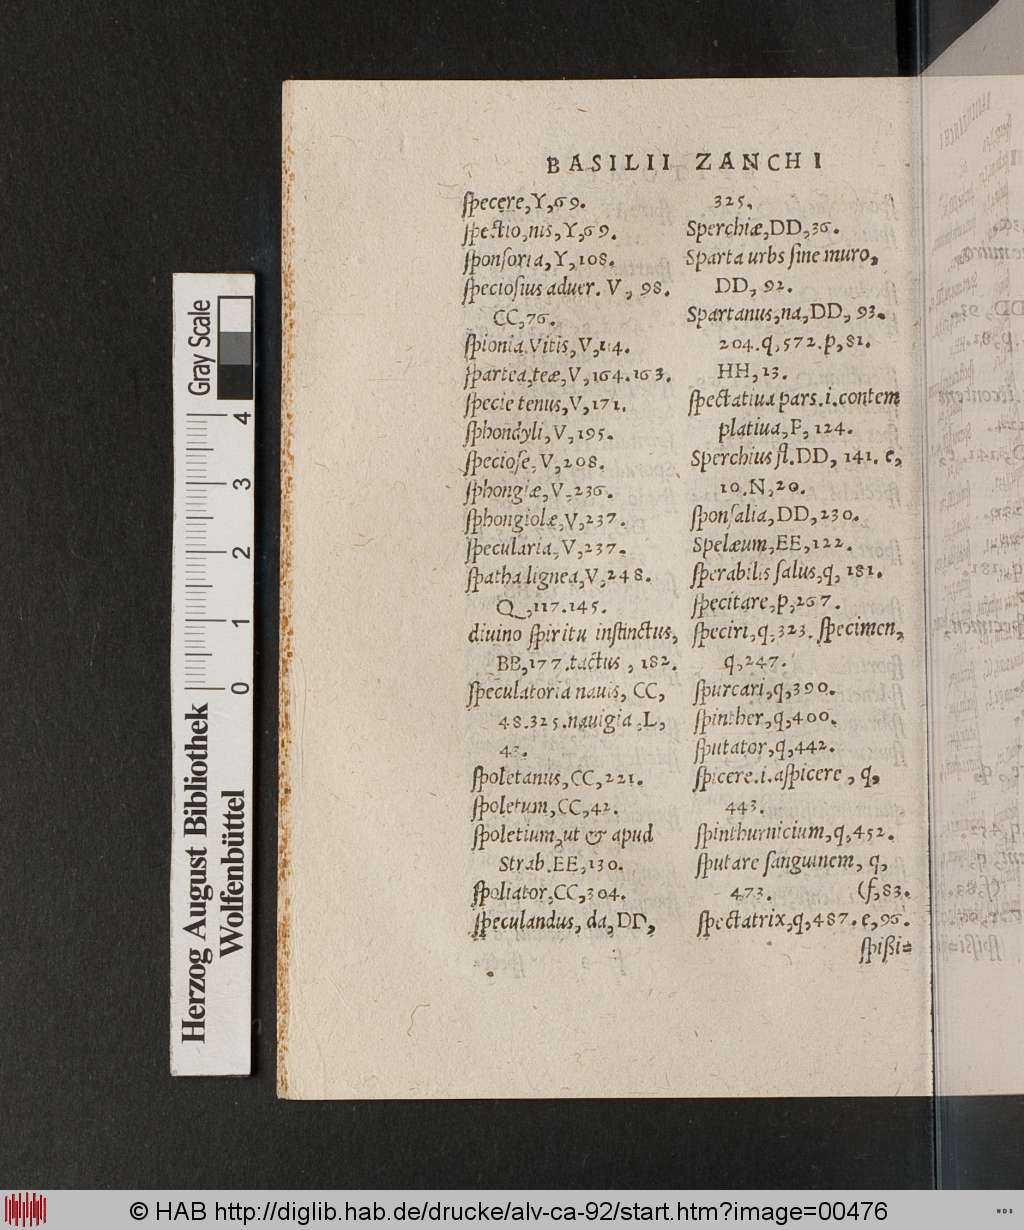 BASILII ZANCHI
ſpecere, Y, 69.
ſpectio, nis, Y, 69.
ſponſoria, Y, 108.
ſpecioſius aduer. V, 98.
CC, 76.
ſpionia Vitis, V, 114.
ſpartea, teæ, V, 164. 163.
ſpecie tenus, V, 171.
ſphondyli, V, 195.
ſpecioſe, V, 208.
ſphongiæ, V, 236.
ſphongiolæ, V, 237.
ſpecularia, V, 237.
ſpatha lignea, V, 248.
Q, 117. 145.
diuino ſpiritu inſtinctus,
BB, 177. tactus, 182.
ſpeculatoria nauis, CC,
48. 325. nauigia, L,
43.
ſpoletanus, CC, 221.
ſpoletum, CC, 42.
ſpoletium, ut & apud
Strab. EE, 130.
ſpoliator, CC, 304.
ſpeculandus, da, DD,
325.
Sperchiæ, DD, 36.
Sparta urbs ſine muro,
DD, 92.
Spartanus, na, DD, 93.
204. q, 572. p, 81.
HH, 13.
ſpectatiua pars. i. contem
platiua, F, 124.
Sperchius fl. DD, 141. e,
10. N, 20.
ſponſalia, DD, 230.
Spelæum, EE, 122.
ſperabilis ſalus, q, 181.
ſpecitare, p, 267.
ſpeciri, q, 323. ſpecimen,
q, 247.
ſpurcari, q, 390.
ſpinther, q, 400.
ſputator, q, 442.
ſpicere. i. aſpicere, q,
443.
ſpinthurnicium, q, 452.
ſputare ſanguinem, q,
473. (f, 83.
ſpectatrix, q, 487. e, 96.
ſpißi=
Gray Scale
4
3
2
1
0
Herzog August Bibliothek
Wolfenbüttel
© HAB http://diglib.hab.de/drucke/alv-ca-92/start.htm?image=00476
WDB